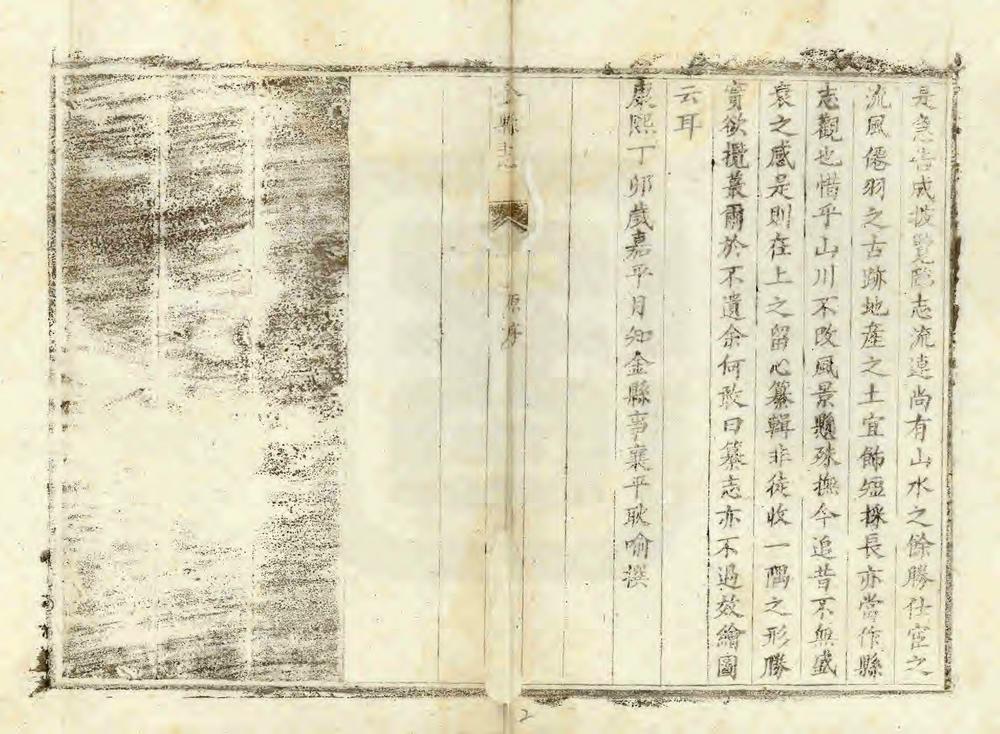 是急告成披覽縣志流連尚有山水之餘勝仕宦之
流風僊羽之古跡地產之土宜飾短採長亦當作縣
志觀也惜乎山川不改風景懸殊撫今追昔不無盛
衰之感是則在上之留心纂輯非徒收一隅之形勝
實欲攬蕞爾於不遺余何敢曰纂志亦不過效繪圖
云耳
康熙丁卯歲嘉平月知金縣事襄平耿喻撰
金縣志
原序
2